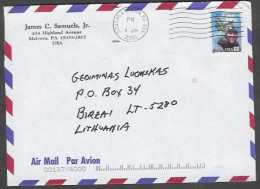 James C. Samuels, Jr.
434 Highland Avenue
Malvern, PA 19355-2617
USA
PM
USA 60
GEDIMINAS LUCINSKAS
P.O. BOX 34
BIRZAI LT-5280
LITHUANIA
Air Mail Par Avion
00137/4000